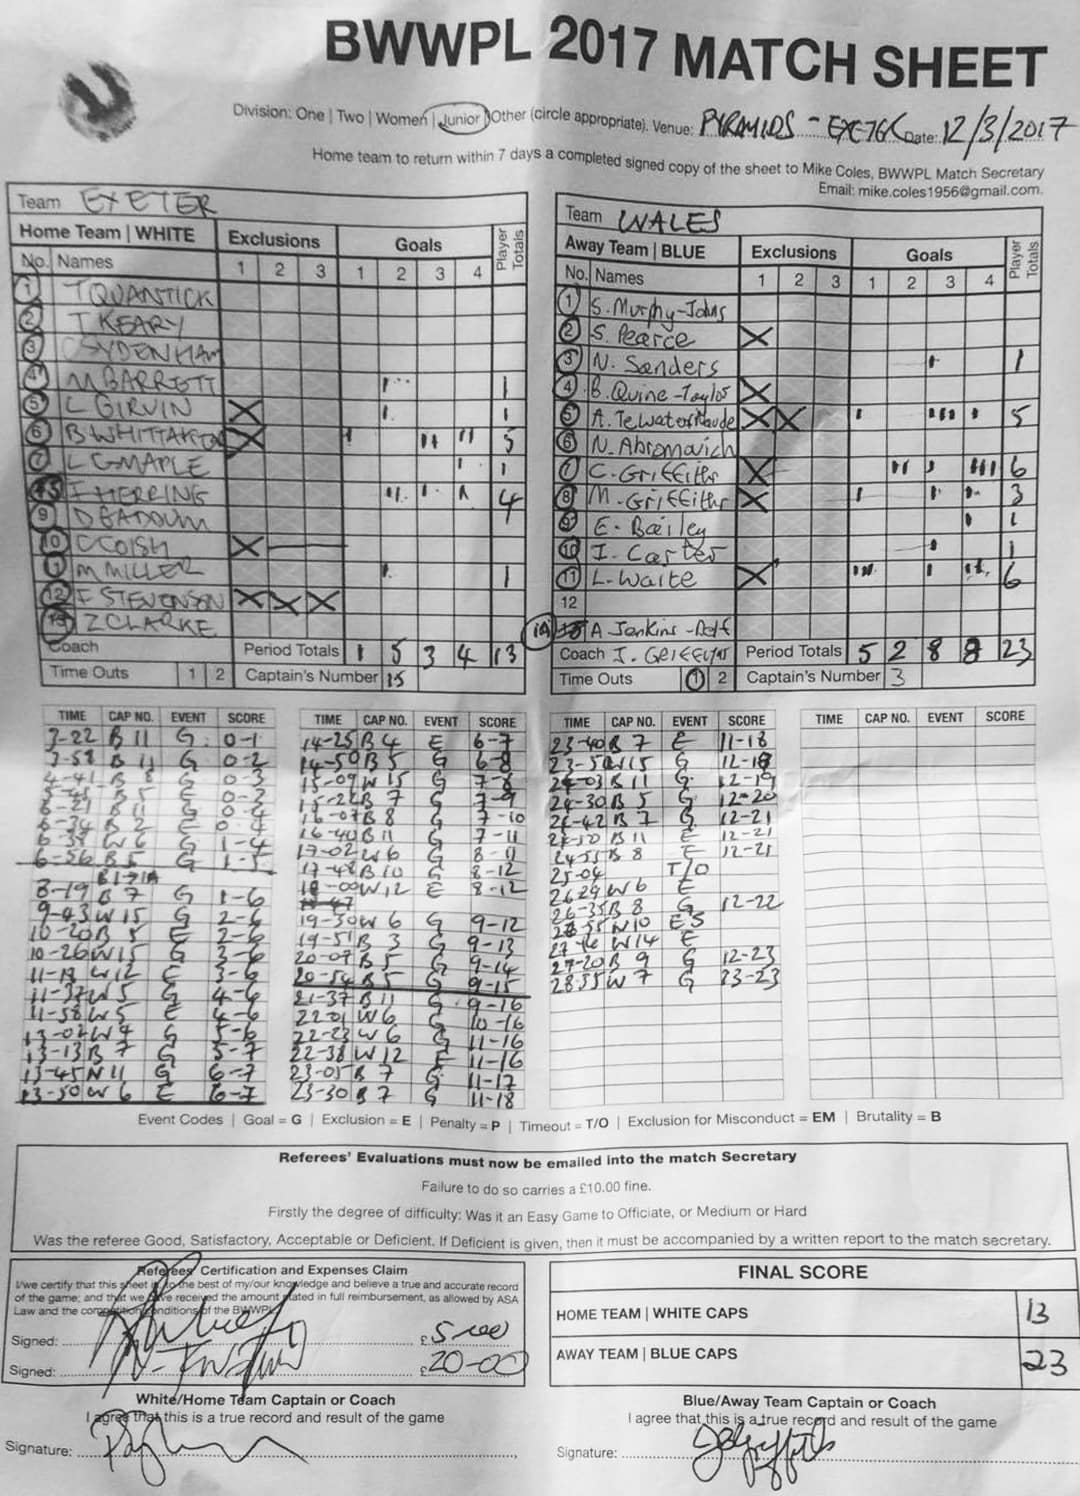 BWWPL 2017 MATCH SHEET
Division: One | Two | Women | Junior | Other (circle appropriate). Venue: PYRAMIDS - EXETER Date: 12/3/2017
Home team to return within 7 days a completed signed copy of the sheet to Mike Coles, BWWPL Match Secretary
Email: mike.coles1956@gmail.com.
Team EXETER
Home Team | WHITE Exclusions Goals Player Totals
No. Names 1 2 3 1 2 3 4
1 T QUANTICK
2 T KEARY
3 C SYDENHAM
4 M BARRETT 1
5 L GIRVIN X 1
6 B WHITTAKER X 5
7 L GMAPLE 1
15 F HERRING 4
9 D BADOUM
10 C COISH X
11 M MILLER 1
12 F STEVENSON X X X
13 Z CLARKE
Coach Period Totals 1 5 3 4 13
Time Outs 1 2 Captain's Number 15
Team WALES
Away Team | BLUE Exclusions Goals Player Totals
No. Names 1 2 3 1 2 3 4
1 S. Murphy-Johns
2 S. Pearce X
3 N. Sanders 1
4 B. Quine-Taylor X
5 A. TeWaterNaude X X 5
6 N. Abromovich
7 C. Griffiths X 6
8 M. Griffiths X 3
9 E. Bailey 1
10 I. Carter 1
11 L. Waite X 6
12
14 A Jenkins-Dolf
Coach J. GRIFFITHS Period Totals 5 2 8 8 23
Time Outs 1 2 Captain's Number 3
TIME CAP NO. EVENT SCORE
3-22 B 11 G 0-1
3-58 B 11 G 0-2
4-41 B 8 G 0-3
5-45 B 5 E 0-3
6-21 B 11 G 0-4
6-34 B 2 E 0-4
6-39 W 6 G 1-4
6-56 B 5 G 1-5
8-19 B 7 G 1-6
9-43 W 15 G 2-6
10-20 B 5 E 2-6
10-26 W 15 G 3-6
11-19 W 12 E 3-6
11-37 W 5 G 4-6
11-58 W 5 E 4-6
13-02 W 4 G 5-6
13-13 B 7 G 5-7
13-45 W 11 G 6-7
13-50 W 6 E 6-7
TIME CAP NO. EVENT SCORE
14-25 B 4 E 6-7
14-50 B 5 G 6-8
15-09 W 15 G 7-8
15-22 B 7 G 7-9
16-07 B 8 G 7-10
16-40 B 11 G 7-11
17-02 W 6 G 8-11
17-48 B 10 G 8-12
18-00 W 12 E 8-12
19-30 W 6 G 9-12
19-51 B 3 G 9-13
20-09 B 5 G 9-14
20-54 B 5 G 9-15
21-37 B 11 G 9-16
22-01 W 6 G 10-16
22-23 W 6 G 11-16
22-38 W 12 E 11-16
23-05 B 7 G 11-17
23-30 B 7 G 11-18
TIME CAP NO. EVENT SCORE
23-40 B 7 E 11-18
23-50 W 15 G 12-18
24-03 B 11 G 12-19
24-30 B 5 G 12-20
24-42 B 7 G 12-21
24-50 B 11 E 12-21
24-55 B 8 E 12-21
25-04 T/O
26-29 W 6 E
26-35 B 8 G 12-22
W 10 E S
W 14 E
27-20 B 9 G 12-23
28-55 W 7 G 13-23
TIME CAP NO. EVENT SCORE
Event Codes | Goal = G | Exclusion = E | Penalty = P | Timeout = T/O | Exclusion for Misconduct = EM | Brutality = B
Referees' Evaluations must now be emailed into the match Secretary
Failure to do so carries a £10.00 fine.
Firstly the degree of difficulty: Was it an Easy Game to Officiate, or Medium or Hard
Was the referee Good, Satisfactory, Acceptable or Deficient. If Deficient is given, then it must be accompanied by a written report to the match secretary.
Referees' Certification and Expenses Claim
I/we certify that this sheet is to the best of my/our knowledge and believe a true and accurate record
of the game; and that we have received the amount stated in full reimbursement, as allowed by ASA
Law and the competition conditions of the BWWPL
Signed: £5-00
Signed: £20-00
FINAL SCORE
HOME TEAM | WHITE CAPS 13
AWAY TEAM | BLUE CAPS 23
White/Home Team Captain or Coach
I agree that this is a true record and result of the game
Signature:
Blue/Away Team Captain or Coach
I agree that this is a true record and result of the game
Signature: